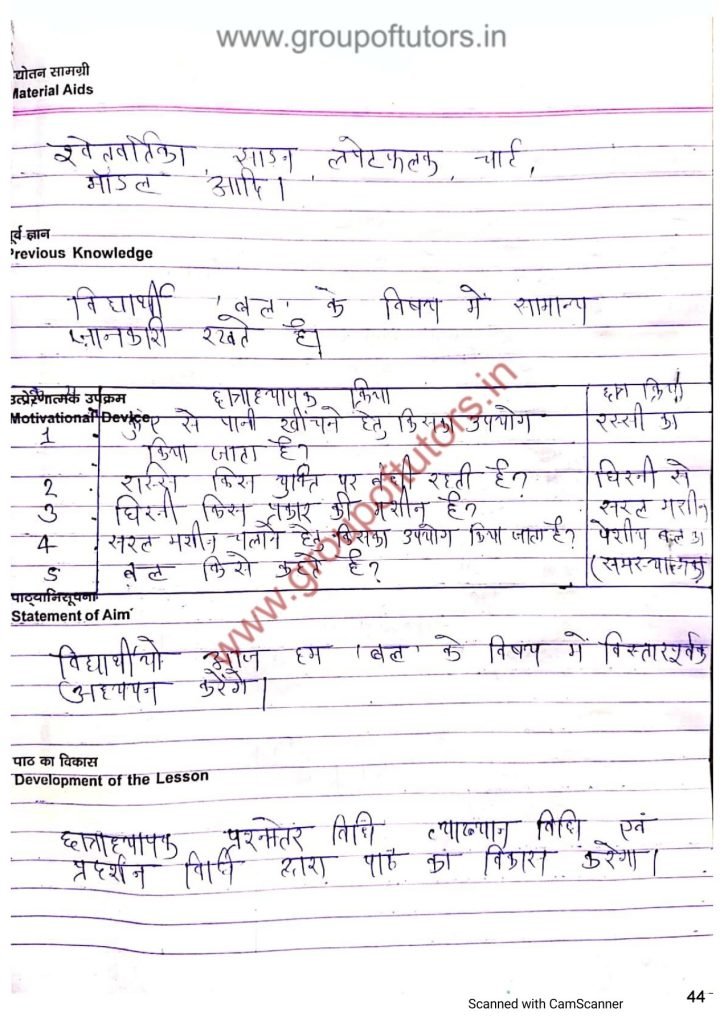 www.groupoftutors.in
द्योतन सामग्री
Material Aids
श्वेतवर्तिका, झाडन, लपेटफलक, चार्ट,
मॉडल आदि।
पूर्व ज्ञान
Previous Knowledge
विद्यार्थी 'बल' के विषय में सामान्य
जानकारी रखते है।
उत्प्रेरणात्मक उपक्रम छात्राध्यापक क्रिया छात्र क्रिया
Motivational Device
1 कुएं से पानी खींचने हेतु किसका उपयोग रस्सी का
किया जाता है?
2 रस्सि किस युक्ति पर बंधी रहती है? घिरनी से
3 घिरनी किस प्रकार की मशीन है? सरल मशीन
4 सरल मशीन चलाने हेतु किसका उपयोग किया जाता है? पेशीय बल का
5 बल किसे कहते है? (समस्यात्मक)
पाठ्याभिसूचना
Statement of Aim
विद्यार्थीयो आज हम 'बल' के विषय में विस्तारपूर्वक
अध्ययन करेंगे।
पाठ का विकास
Development of the Lesson
छात्राध्यापक प्रश्नोतर विधि व्याख्यान विधि एवं
प्रदर्शन विधि द्वारा पाठ का विकास करेगा।
www.groupoftutors.in
44
Scanned with CamScanner